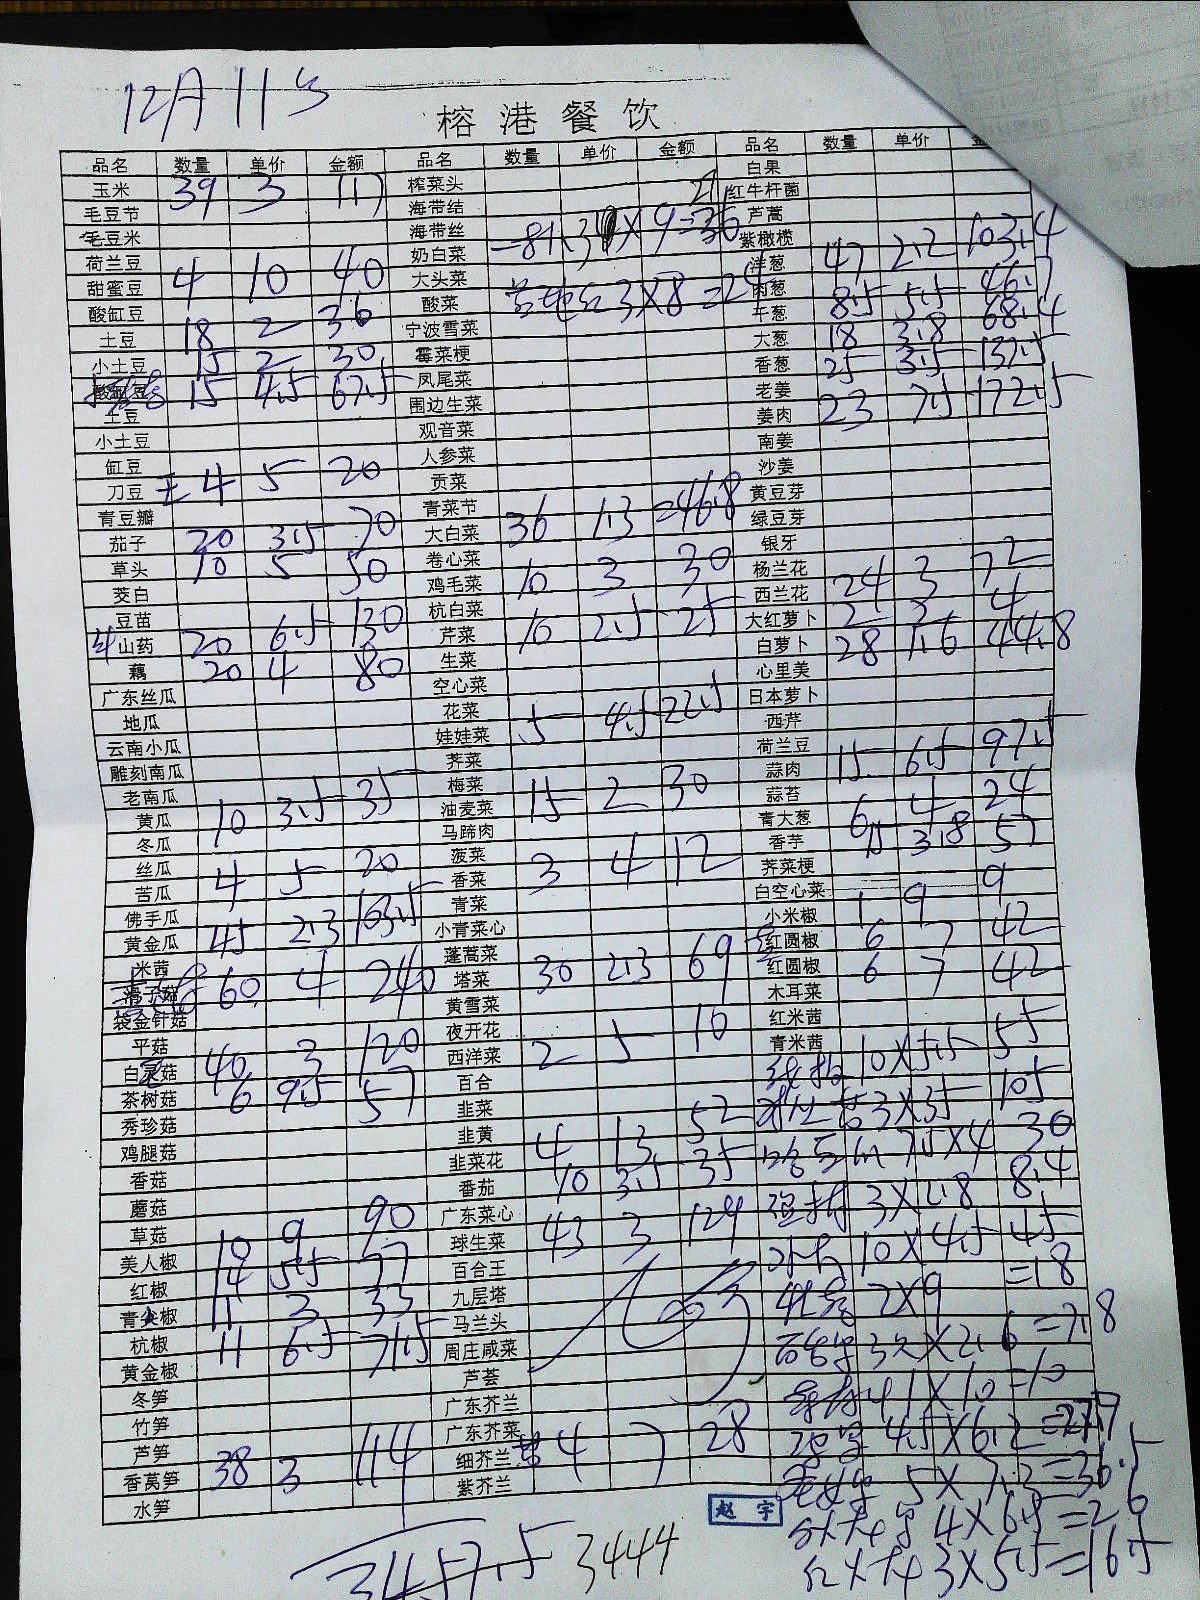 12月11号
榕港餐饮
品名 数量 单价 金额 品名 数量 单价 金额 品名 数量 单价
玉米 39 3 117 榨菜头 白果
毛豆节 海带结 红牛杆菌
毛豆米 海带丝 芦蒿
荷兰豆 奶白菜 紫橄榄
甜蜜豆 4 10 40 大头菜 洋葱 47 2.2 103.4
酸缸豆 酸菜 3×8=24 肉葱 8.5 5.5 46.7
土豆 18 2 36 宁波雪菜 干葱 18 3.8 68.4
小土豆 15 2 30 霉菜梗 大葱 25 3.5 137.5
15 4.5 67.5 凤尾菜 香葱
土豆 围边生菜 老姜 23 7.5 172.5
小土豆 观音菜 姜肉
缸豆 人参菜 南姜
刀豆 4 5 20 贡菜 沙姜
青豆瓣 青菜节 黄豆芽
茄子 20 3.5 70 大白菜 36 1.3 =46.8 绿豆芽
草头 10 5 50 卷心菜 银牙
茭白 鸡毛菜 10 3 30 杨兰花
豆苗 杭白菜 西兰花 24 3 72
山药 20 6.5 130 芹菜 10 2.5 25 大红萝卜 2 2 4
藕 20 4 80 生菜 白萝卜 28 1.6 44.8
广东丝瓜 空心菜 心里美
地瓜 花菜 5 4.5 22.5 日本萝卜
云南小瓜 娃娃菜 西芹
雕刻南瓜 荠菜 荷兰豆 15 6.5 97.5
老南瓜 梅菜 15 2 30 蒜肉
黄瓜 10 3.5 35 油麦菜 蒜苔 6 4 24
冬瓜 马蹄肉 青大葱 15 3.8 57
丝瓜 4 5 20 菠菜 3 4 12 香芋
苦瓜 香菜 荠菜梗
佛手瓜 青菜 白空心菜 1 9 9
黄金瓜 45 2.3 103.5 小青菜心 小米椒
米茜 蓬蒿菜 红圆椒 6 7 42
滑子菇 60 4 240 塔菜 30 2.3 69 红圆椒 6 7 42
袋金针菇 黄雪菜 木耳菜
平菇 夜开花 红米茜
白灵菇 40 3 120 西洋菜 2 5 10 青米茜
茶树菇 6 9.5 57 百合 10×5.5 55
秀珍菇 韭菜 3×35 105
鸡腿菇 韭黄 4 13 52 7.5×4 30
香菇 韭菜花 3×2.8 8.4
蘑菇 番茄 10 3.5 35 10×4.5 45
草菇 10 9 90 广东菜心 43 3 129 2×9 =18
美人椒 14 5.5 77 球生菜 3×2.6 =7.8
红椒 百合王 1×10 =10
青尖椒 11 3 33 九层塔 4.5×6.2
杭椒 11 6.5 71.5 马兰头 5×7.3 =36.5
黄金椒 周庄咸菜 4×6.5 =26
冬笋 芦荟 3×5.5 =16.5
竹笋 广东芥兰
芦笋 广东芥菜
香莴笋 38 3 114 细芥兰 4 7 28
水笋 紫芥兰
赵宇
3457.5 3444